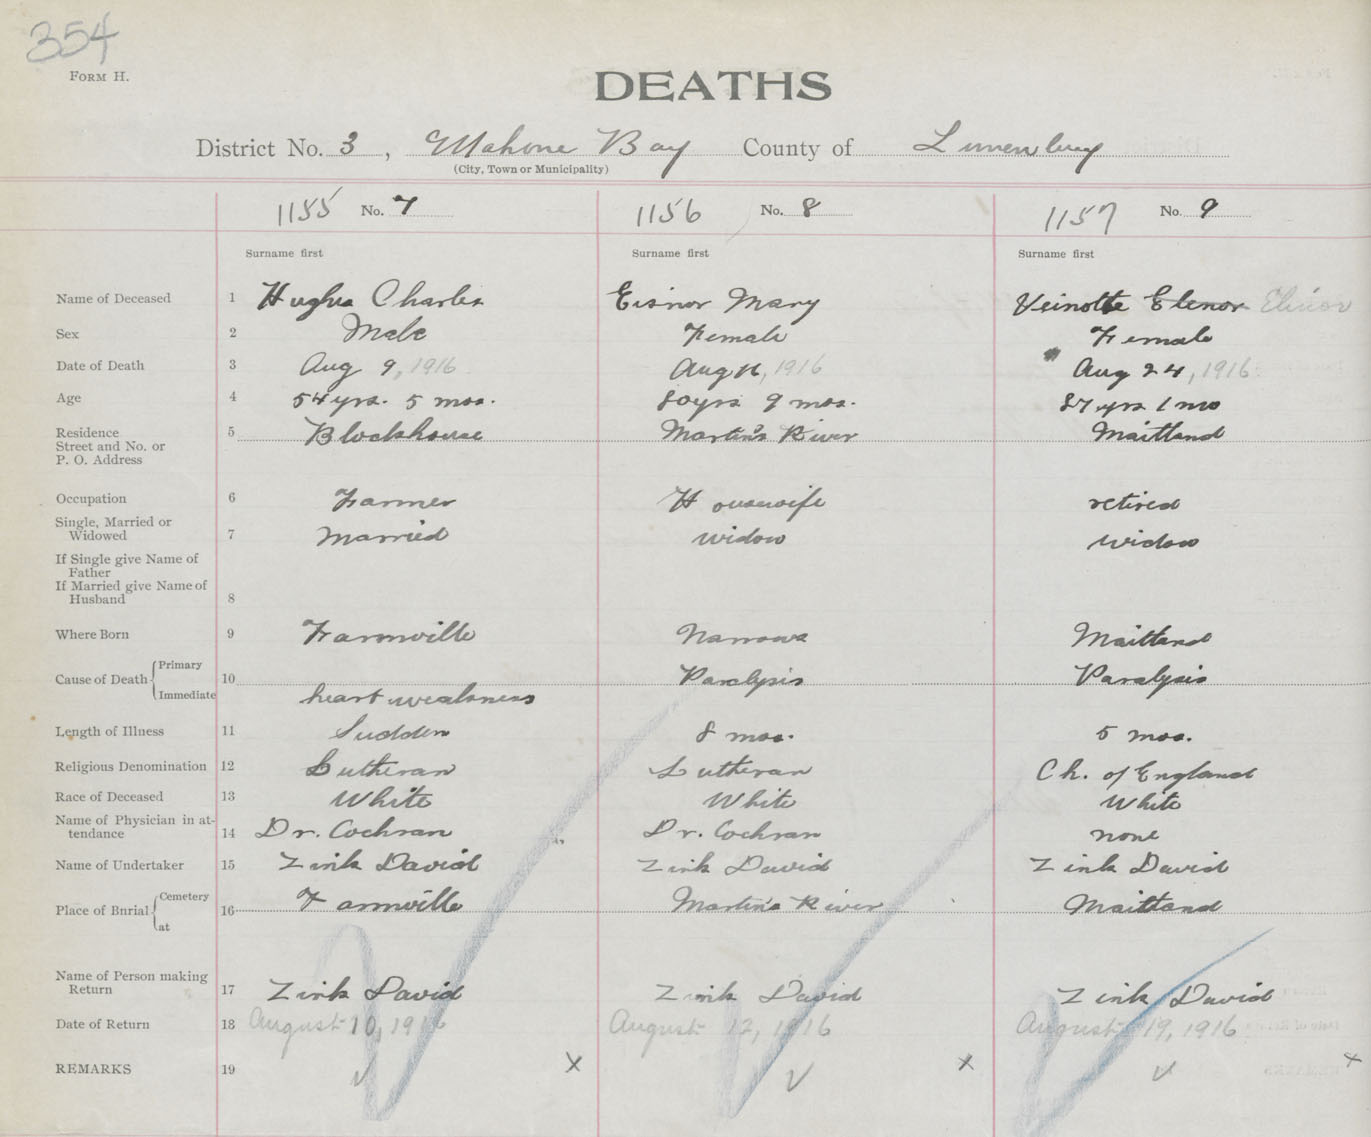 354
FORM H.
DEATHS
District No. 3, Mahone Bay County of Lunenburg
(City, Town or Municipality)
1155 No. 7 1156 No. 8 1157 No. 9
Surname first Surname first Surname first
Name of Deceased 1 Hughes Charles Eisnor Mary Veinotte Elenor Elinor
Sex 2 Male Female Female
Date of Death 3 Aug 9, 1916 Aug 16, 1916 Aug 24, 1916
Age 4 54 yrs. 5 mos. 80 yrs 9 mos. 87 yrs 1 mo
Residence 5 Blockhouse Martin's River Maitland
Street and No. or
P. O. Address
Occupation 6 Farmer Housewife retired
Single, Married or
Widowed 7 Married widow widow
If Single give Name of
Father
If Married give Name of
Husband 8
Where Born 9 Farmville Narrows Maitland
Primary
Cause of Death 10 Paralysis Paralysis
Immediate heart weakness
Length of Illness 11 Sudden 8 mos. 5 mos.
Religious Denomination 12 Lutheran Lutheran Ch. of England
Race of Deceased 13 White White White
Name of Physician in at-
tendance 14 Dr. Cochran Dr. Cochran none
Name of Undertaker 15 Zink David Zink David Zink David
Cemetery
Place of Burial 16 Farmville Martins River Maitland
at
Name of Person making
Return 17 Zink David Zink David Zink David
Date of Return 18 August 10, 1916 August 12, 1916 August 19, 1916
REMARKS 19 x x x